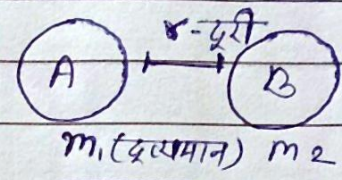 r-दूरी
A B
m₁(द्रव्यमान) m2